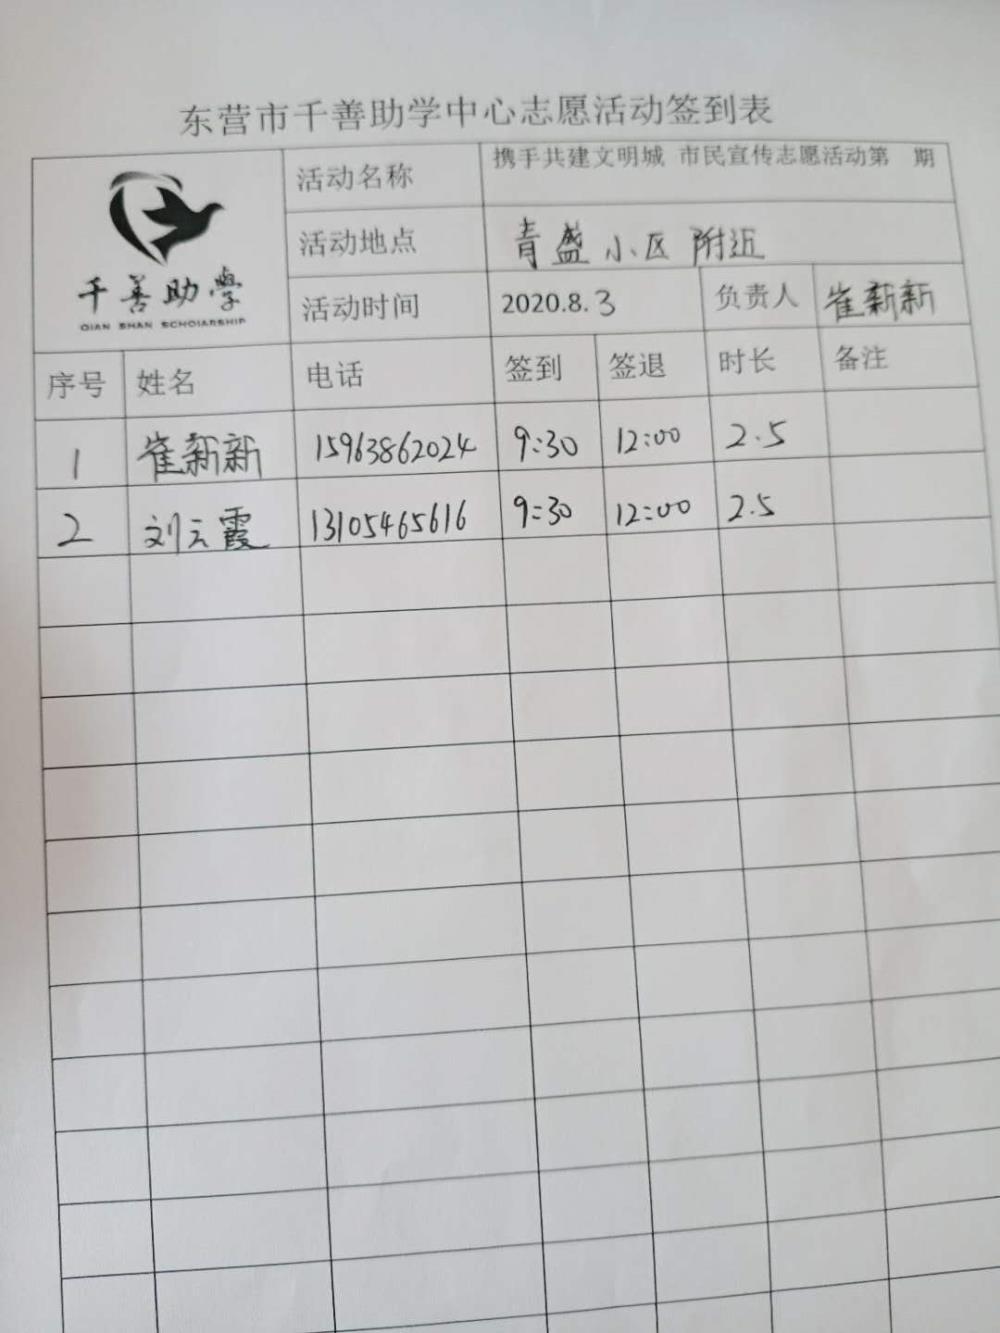 东营市千善助学中心志愿活动签到表
千善助学
QIAN SHAN SCHOLARSHIP
活动名称 携手共建文明城 市民宣传志愿活动第 期
活动地点 青盛小区附近
活动时间 2020.8.3 负责人 崔新新
序号 姓名 电话 签到 签退 时长 备注
1 崔新新 15963862024 9:30 12:00 2.5
2 刘云霞 13105465616 9:30 12:00 2.5